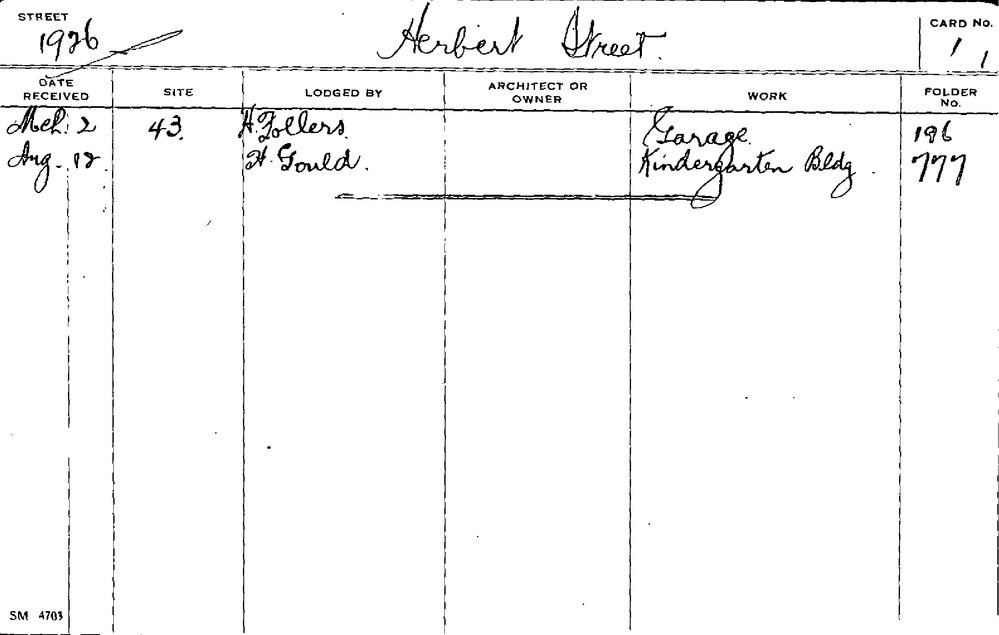 STREET
1926 Herbert Street. CARD No. 1 1
DATE RECEIVED SITE LODGED BY ARCHITECT OR OWNER WORK FOLDER No.
Mch. 2 43. H. Follers. Garage. 196
Aug. 12. H. Gould. Kindergarten Bldg. 777
SM 4703